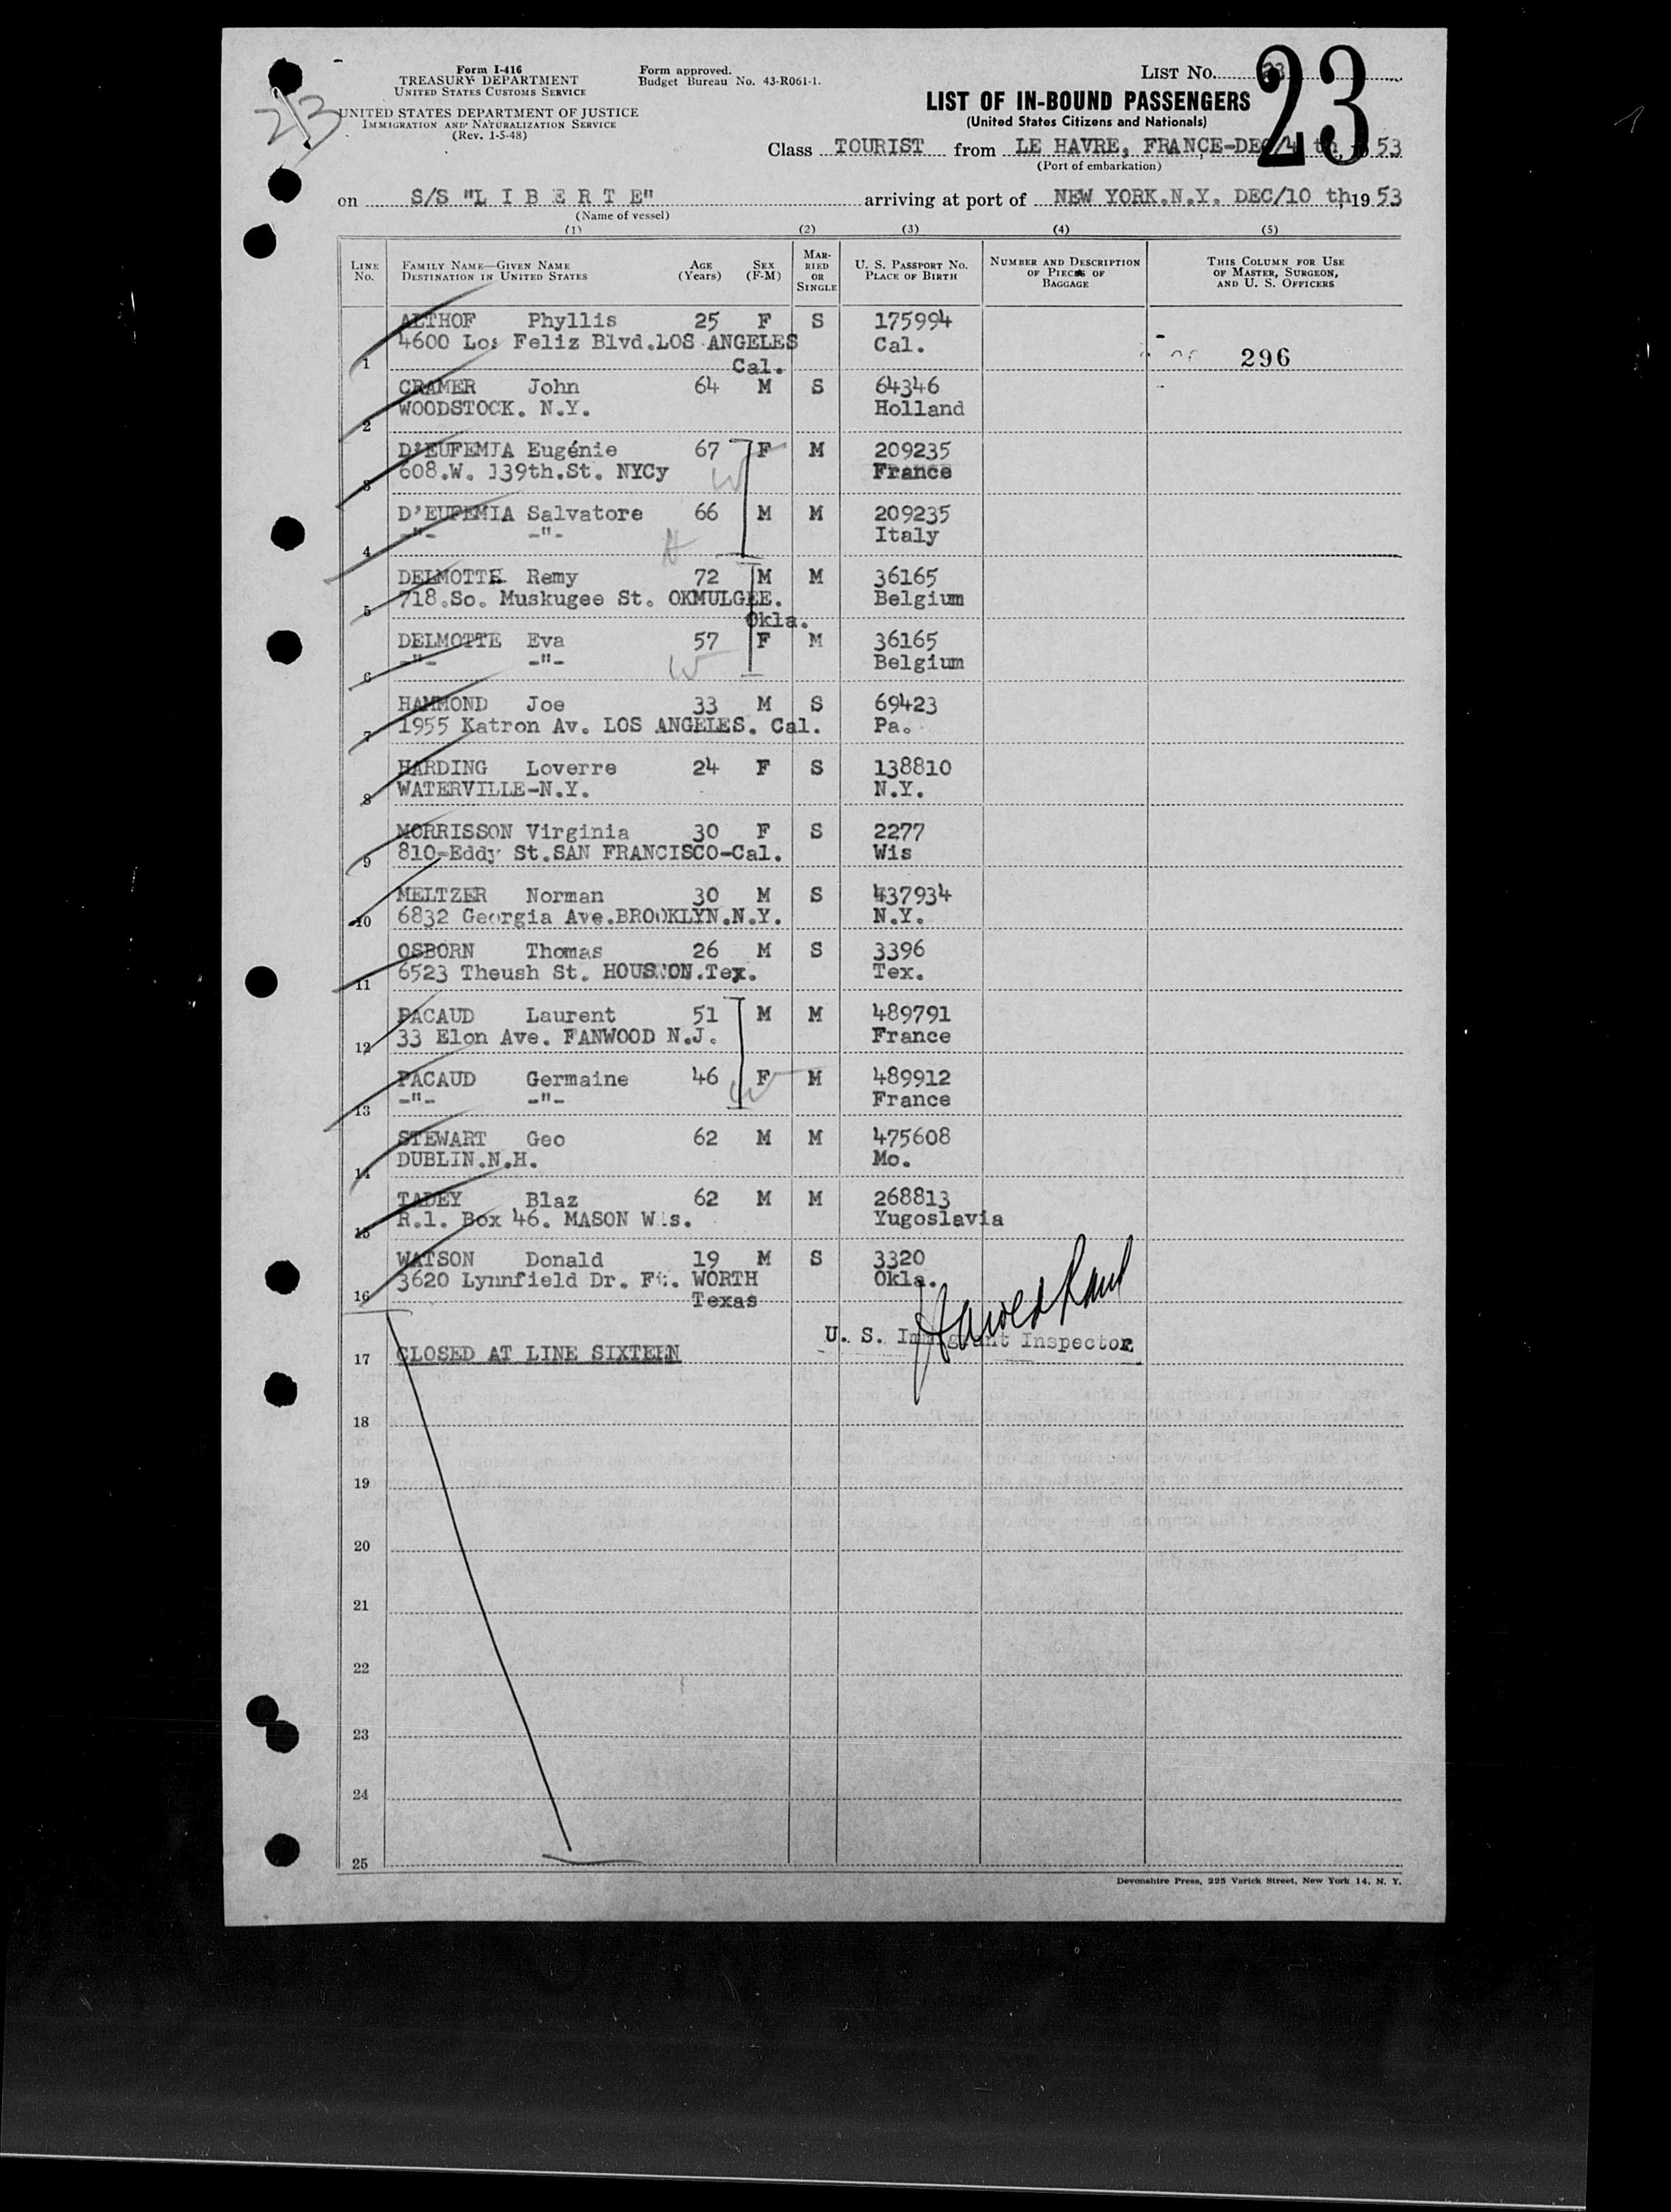 Form I-416
TREASURY DEPARTMENT
UNITED STATES CUSTOMS SERVICE
UNITED STATES DEPARTMENT OF JUSTICE
IMMIGRATION AND NATURALIZATION SERVICE
(Rev. 1-5-48)
Form approved.
Budget Bureau No. 43-R061-1.
LIST No. 23
23
LIST OF IN-BOUND PASSENGERS
(United States Citizens and Nationals)
Class TOURIST from LE HAVRE, FRANCE-DEC/4 th, 1953
(Port of embarkation)
on S/S "L I B E R T E" arriving at port of NEW YORK.N.Y. DEC/10 th, 1953
(Name of vessel)
(1) (2) (3) (4) (5)
LINE No. FAMILY NAME—GIVEN NAME DESTINATION IN UNITED STATES AGE (Years) SEX (F-M) MARRIED OR SINGLE U. S. PASSPORT NO. PLACE OF BIRTH NUMBER AND DESCRIPTION OF PIECES OF BAGGAGE THIS COLUMN FOR USE OF MASTER, SURGEON, AND U. S. OFFICERS
ALTHOF Phyllis 25 F S 175994
4600 Los Feliz Blvd.LOS ANGELES Cal.
1 Cal. 296
CRAMER John 64 M S 64346
2 WOODSTOCK. N.Y. Holland
D'EUFEMIA Eugénie 67 F M 209235
3 608.W. 139th.St. NYCy W France
D'EUFEMIA Salvatore 66 M M 209235
4 -"- -"- H Italy
DELMOTTE Remy 72 M M 36165
5 718.So. Muskugee St. OKMULGEE. Belgium
Okla.
DELMOTTE Eva 57 F M 36165
6 -"- -"- W Belgium
HAMMOND Joe 33 M S 69423
7 1955 Katron Av. LOS ANGELES. Cal. Pa.
HARDING Loverre 24 F S 138810
8 WATERVILLE-N.Y. N.Y.
MORRISSON Virginia 30 F S 2277
9 810-Eddy St.SAN FRANCISCO-Cal. Wis
MELTZER Norman 30 M S 437934
10 6832 Georgia Ave.BROOKLYN.N.Y. N.Y.
OSBORN Thomas 26 M S 3396
11 6523 Theush St. HOUSTON.Tex. Tex.
PACAUD Laurent 51 M M 489791
12 33 Elon Ave. FANWOOD N.J. France
PACAUD Germaine 46 F M 489912
13 -"- -"- W France
STEWART Geo 62 M M 475608
14 DUBLIN.N.H. Mo.
TADEY Blaz 62 M M 268813
15 R.1. Box 46. MASON Wis. Yugoslavia
WATSON Donald 19 M S 3320
3620 Lynnfield Dr. Ft. WORTH Okla.
16 Texas
U. S. Immigrant Inspector
17 CLOSED AT LINE SIXTEEN
18
19
20
21
22
23
24
25
Devonshire Press, 225 Varick Street, New York 14, N. Y.